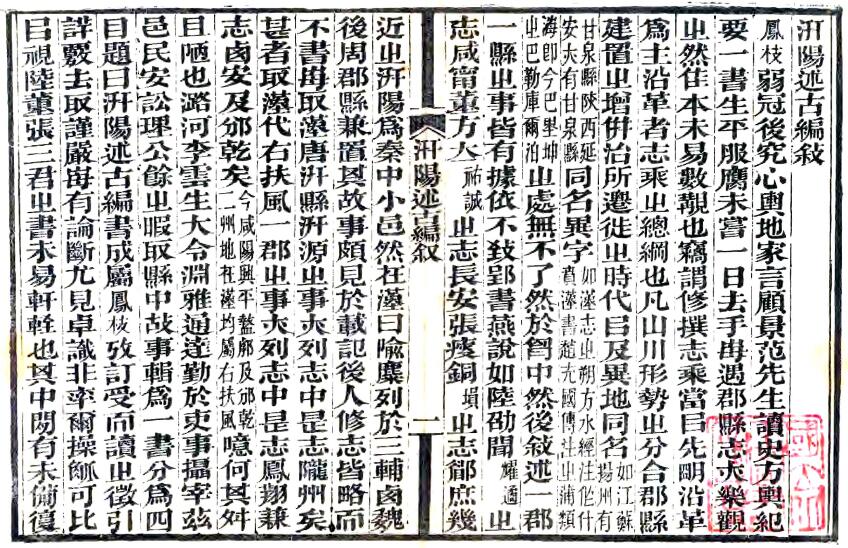 汧陽述古編敘
鳳枝弱冠後究心輿地家言顧景范先生讀史方輿紀
要一書生平服膺未嘗一日去手每遇郡縣志亦樂觀
之然佳本未易數覯也竊謂修撰志乘當㠯先朙沿革
爲主沿革者志乘之總綱也凡山川形勢之分合郡縣
建置之增併治所遷徙之時代㠯及異地同名如江蘇揚州有
甘泉縣陝西延安亦有甘泉縣同名異字如漢志之朔方水經注作什賁漢書趙充國傳注之蒲類
海卽今巴里坤之巴勒庫爾泊之處無不了然於匈中然後敘述一郡
一縣之事皆有據依不致郢書燕說如陸劭聞耀遹之
志咸甯董方大祐誠之志長安張瘦銅塤之志鄜庶幾
汧陽述古編敘 一
近之汧陽爲秦中小邑然在漢曰隃麋列於三輔西魏
後周郡縣兼置其故事頗見於載記後人修志皆略而
不書每取漢唐汧縣汧源之事亦列志中是志隴州矣
甚者取漢代右扶風一郡之事亦列志中是志鳳翔兼
志西安及邠乾矣今咸陽興平盩鄠及邠乾二州地在漢均屬右扶風噫何其舛
且陋也潞河李雲生大令淵雅通達勤於吏事攝宰茲
邑民安訟理公餘之暇取縣中故事輯爲一書分爲四
目題曰汧陽述古編書成屬鳳枝攷訂受而讀之徵引
詳覈去取謹嚴每有論斷尤見卓識非率爾操觚可比
㠯視陸董張三君之書未易軒輊也其中閒有未備復